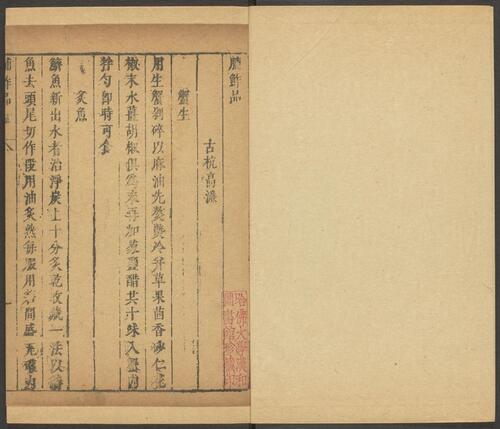 脯鮓品
古杭高濂
蟹生
用生蟹剁碎以麻油先熬熟冷并草果茴香砂仁花
椒末水薑胡椒俱為末再加葱鹽醋共十味入蟹內
拌勻即時可食
炙魚
鱭魚新出水者治淨炭上十分炙乾收藏一法以鱭
魚去頭尾切作段用油炙熟每服用箬間盛瓦罐內
脯鮓品
哈佛大學漢和
圖書館珍藏印